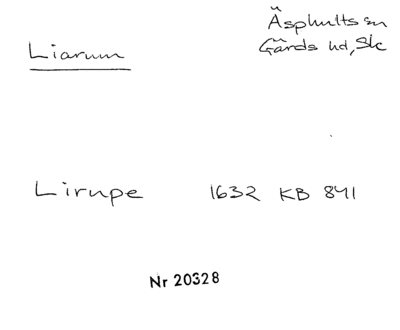 Äsphults sn
Liarum
Gärds hd, Sk
Lirupe 1632 KB 841
Nr 20328